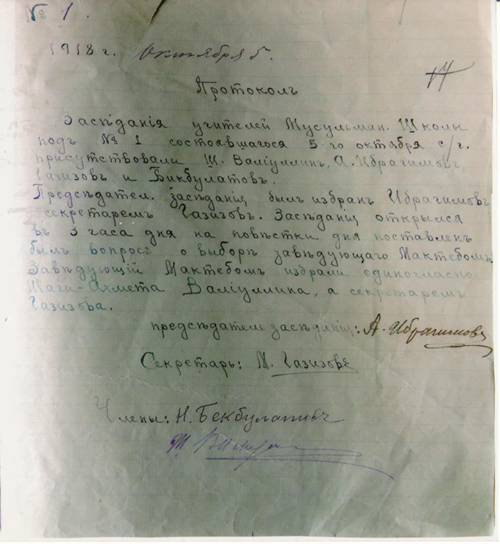 № 1.
1918 г. октября 5.
Протоколъ
Засѣданія учителей Мусульман. Школы
подъ № 1 состоявшагося 5 го октября с/г.
присутствовали Ш. Валіуллинъ, А. Ибрагимовъ
Газизовъ и Бикбулатовъ.
Предсѣдател. засѣданіц былъ избран Ибрагимовъ
секретаремъ Газизовъ. Засѣданіц открылся
въ 3 часа дня на повѣстки дня поставлен
былъ вопросъ о выборѣ завѣдующаго Мактебомъ.
Завѣдующій Мактебомъ избрали единогласно
Шаги-Ахмета Валіуллина, а секретаремъ
Газизова.
предсѣдатель засѣданіц: А. Ибрагимовъ
Секретарь: М. Газизовъ
Члены: Н. Бекбулатовъ
Ш.